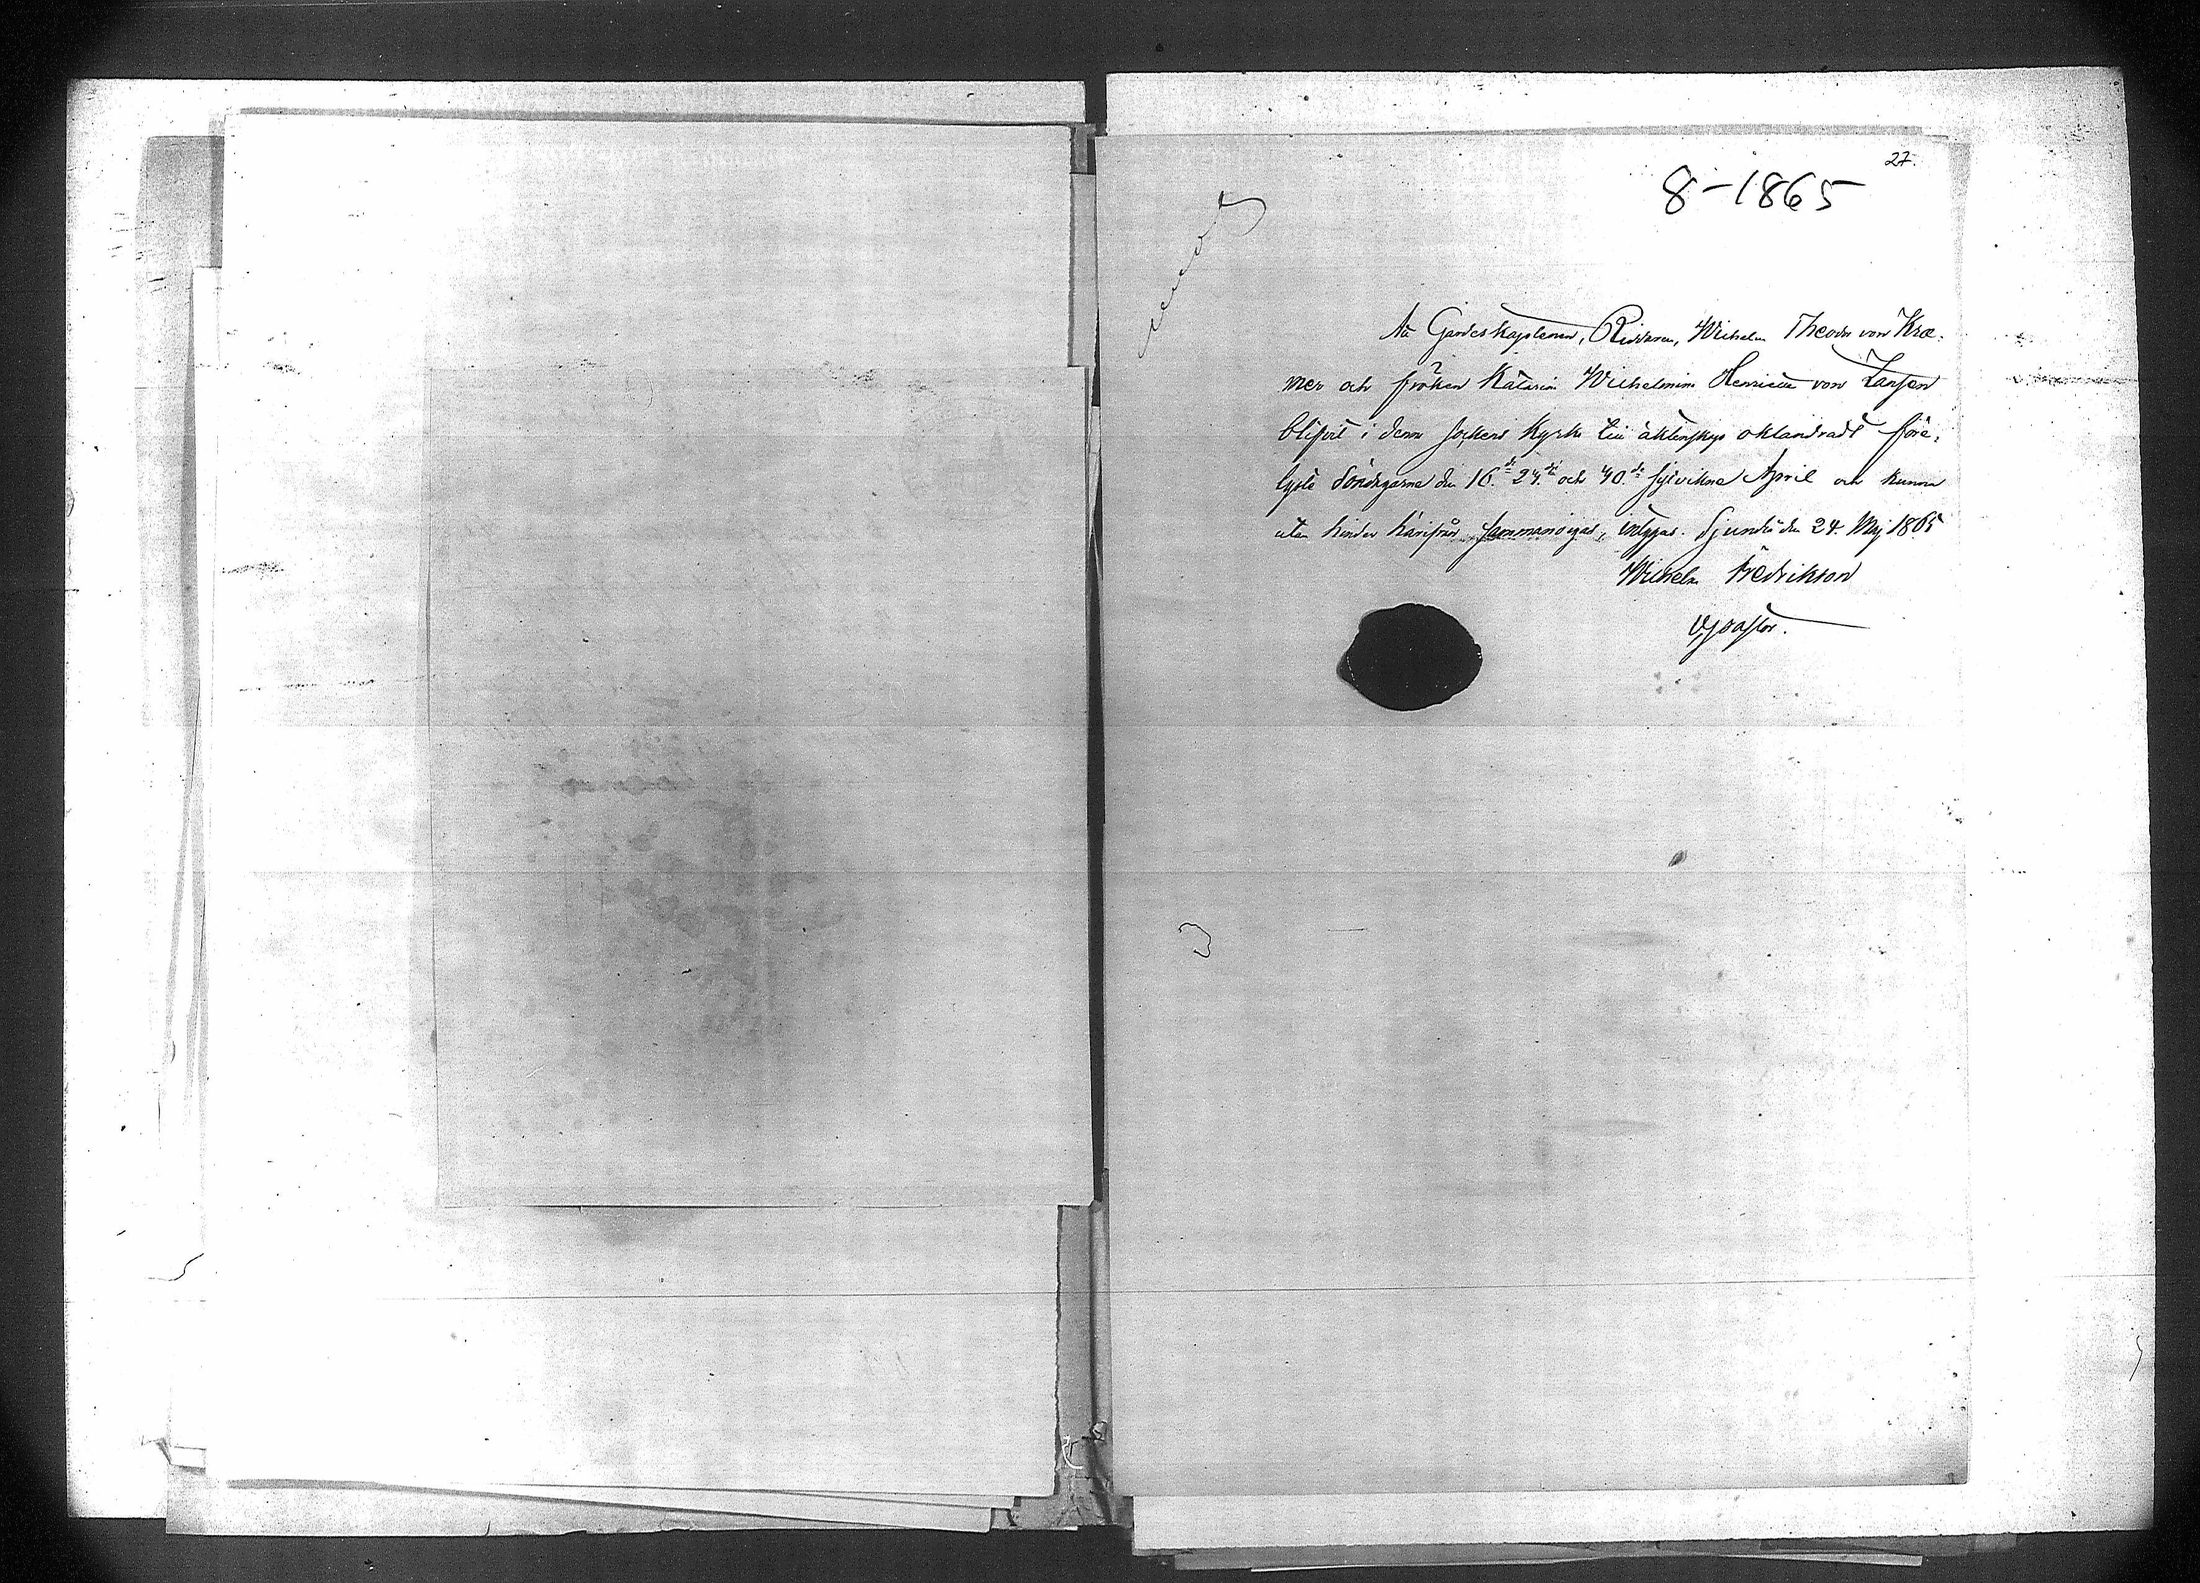 27.
8-1865
At Gardeskaptenen, Riddaren, Wilhelm Theodor von Kræ-
mer och fröken Katarin Wilhelmina Henriette von Zansen
blifvit i denna sockens kyrka till äktenskap oklandradt före-
lyste Söndagarne den 16.de 24.de och 30.de sistvikne April och kunna
utan hinder härifrån sammanvigas, intygas. Sjundeå den 24. Maj 1865
Wilhelm Fredrikson
VPastor.